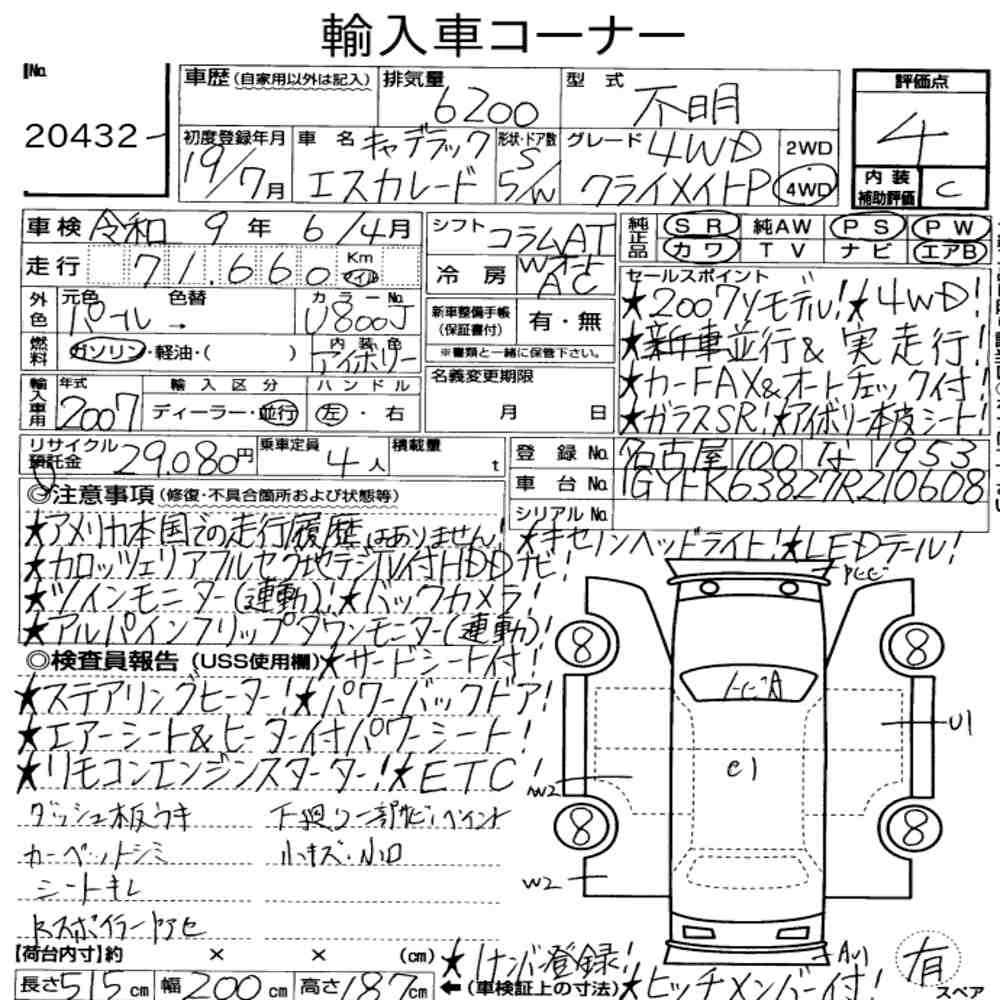 輸入車コーナー
No.
20432
車歴 (自家用以外は記入)
排気量
6200
型式
不明
評価点
4
内装補助評価
C
初度登録年月
19/7月
車名
キャデラック
エスカレード
形状・ドア数
5/W
グレード
4WD
クライメイトP
2WD
4WD
車検 令和 9年 6/4月
走行 71.660 Km マイル
シフト コラムAT
冷房 Wオート AC
純正品
SR 純AW PS PW
カワ TV ナビ エアB
外色 元色 色替
パール →
カラーNo.
U800J
燃料 ガソリン・軽油・( )
内装色
アイボリー
新車整備手帳(保証書付) 有・無
※書類と一緒に保管下さい。
セールスポイント
★2007yモデル!★4WD!
★新車並行&実走行!
★カーFAX&オートチェック付!
★ガラスSR!★アイボリー本皮シート!
輸入車用
年式
2007
輸入区分
ディーラー・並行
ハンドル
左・右
名義変更期限
月 日
リサイクル預託金 29.080円
乗車定員 4人
積載量 t
登録No. 名古屋 100 な 1953
車台No. 1GYFK63827R210608
シリアルNo.
◎注意事項 (修復・不具合箇所および状態等)
★アメリカ本国での走行履歴はありません!
★キセノンヘッドライト!★LEDテール!
★カロッツェリアフルセグ地デジTV付HDDナビ!
★ツインモニター(連動)!★バックカメラ!
★アルパインフリップダウンモニター(連動)!
◎検査員報告 (USS使用欄)★サードシート付!
★ステアリングヒーター!★パワーバックドア!
★エアーシート&ヒーター付パワーシート!
★リモコンエンジンスターター!★ETC!
ダッシュ板ウキ
下廻り一部サビ・ペイント
カーペットシミ
小キズ・小凹
シートキレ
Rスポイラーヤケ
8
8
8
8
U1
e1
W2
W2
【荷台内寸】約 × × (cm)
長さ515cm 幅200cm 高さ187cm
★1ナンバー登録!
←(車検証上の寸法)★ヒッチメンバー付!
有
スペア